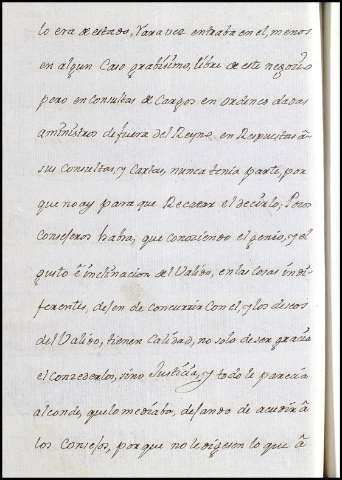 lo era de estado, Yara vez entraba en el, menos
en algun Caso gravissimo, libre de este negocio
pero en Consultas de Cargos en ordenes dadas
aministros de fuera del Reyno, en Respuestas â
sus Consultas, y Cartas, nunca tenia parte, por
que no ay para que Recatar el decirlo, Pero
Consejeros habia, que Conoziendo el genio, y el
gusto ê inclinacion del Valido, en las Cosas indi-
ferentes, dejen de concurrir Con el, y los deseos
del Valido, tienen Calidad, no solo de ser gracia
el Conzederlos, sino Justicia, y todo le parecia
al conde, que lo mediaba, dejando de acudir â
los Consejos, por que no le digesen lo que â